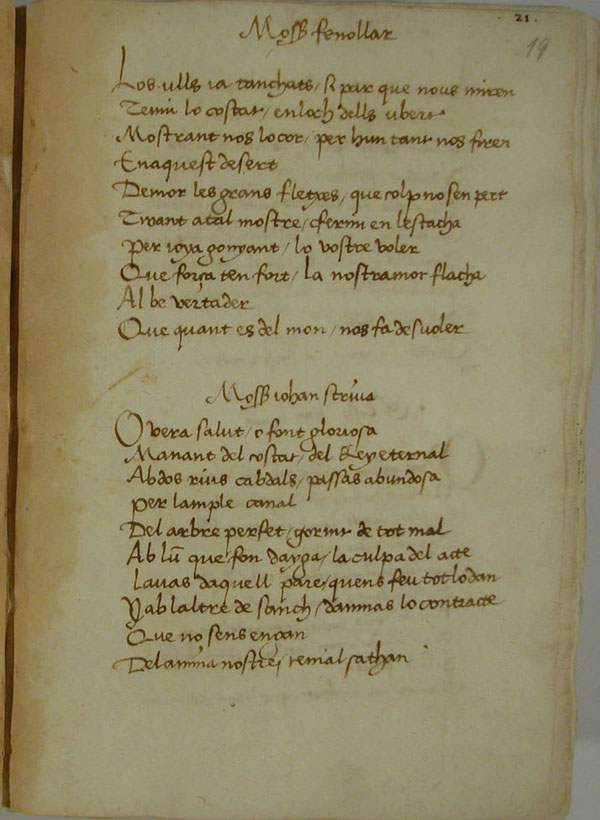 21.
19
Moss fenollar
Los ulls ia tanchats / si par que nous miren
Temi lo costat / en loch dells ubert
Mostrant nos lo cor / per hun tant nos firen
En aquest desert
De mor les grans fletxes / que colp no sen pert
Tirant a tal mostre / e ferim en lestacha
Per ioya gonyant / lo vostre voler
Que força ten fort / la nostramor flacha
Al be vertader
Que quant es del mon / nos fa desvoler
Moss iohan scriua
O vera salut / o font gloriosa
Manant del costat / del Rey eternal
Ab dos rius cabdals / passas abundosa
Per lample canal
Del arbre perfet / gorint de tot mal
Ab lū que fon dayga / la culpa del acte
Lauas daquell pare / quens feu tot lo dan
Y ab laltre de sanch / damnas lo contracte
Que no sens engan
Del anima nostra / tenial sathan